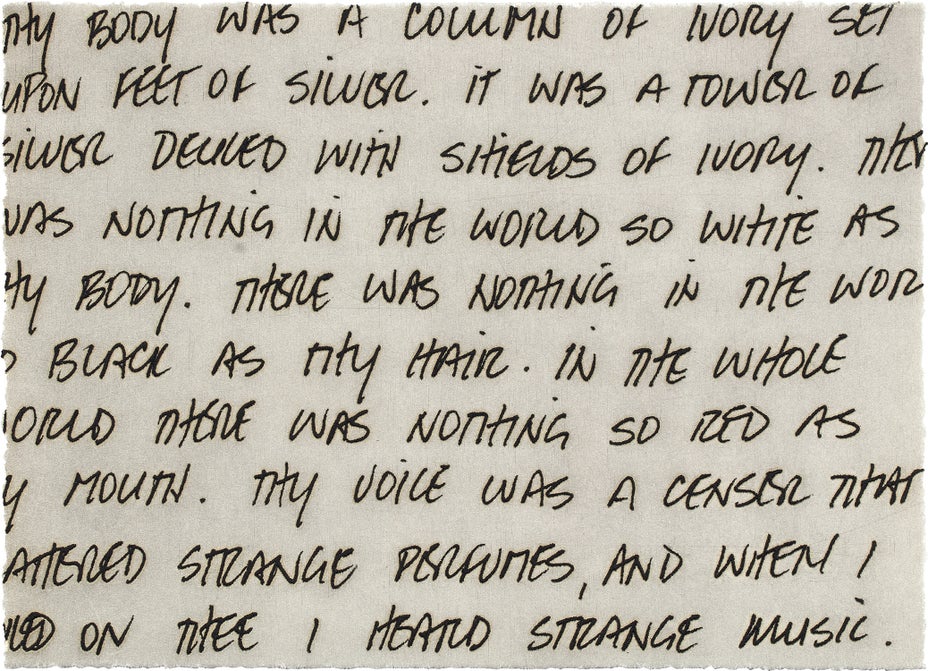 THY BODY WAS A COLUMN OF IVORY SET
UPON FEET OF SILVER. IT WAS A TOWER OF
SILVER DECKED WITH SHIELDS OF IVORY. THER
WAS NOTHING IN THE WORLD SO WHITE AS
HY BODY. THERE WAS NOTHING IN THE WOR
O BLACK AS THY HAIR. IN THE WHOLE
WORLD THERE WAS NOTHING SO RED AS
Y MOUTH. THY VOICE WAS A CENSER THAT
ATTERED STRANGE PERFUMES, AND WHEN I
KED ON THEE I HEARD STRANGE MUSIC.